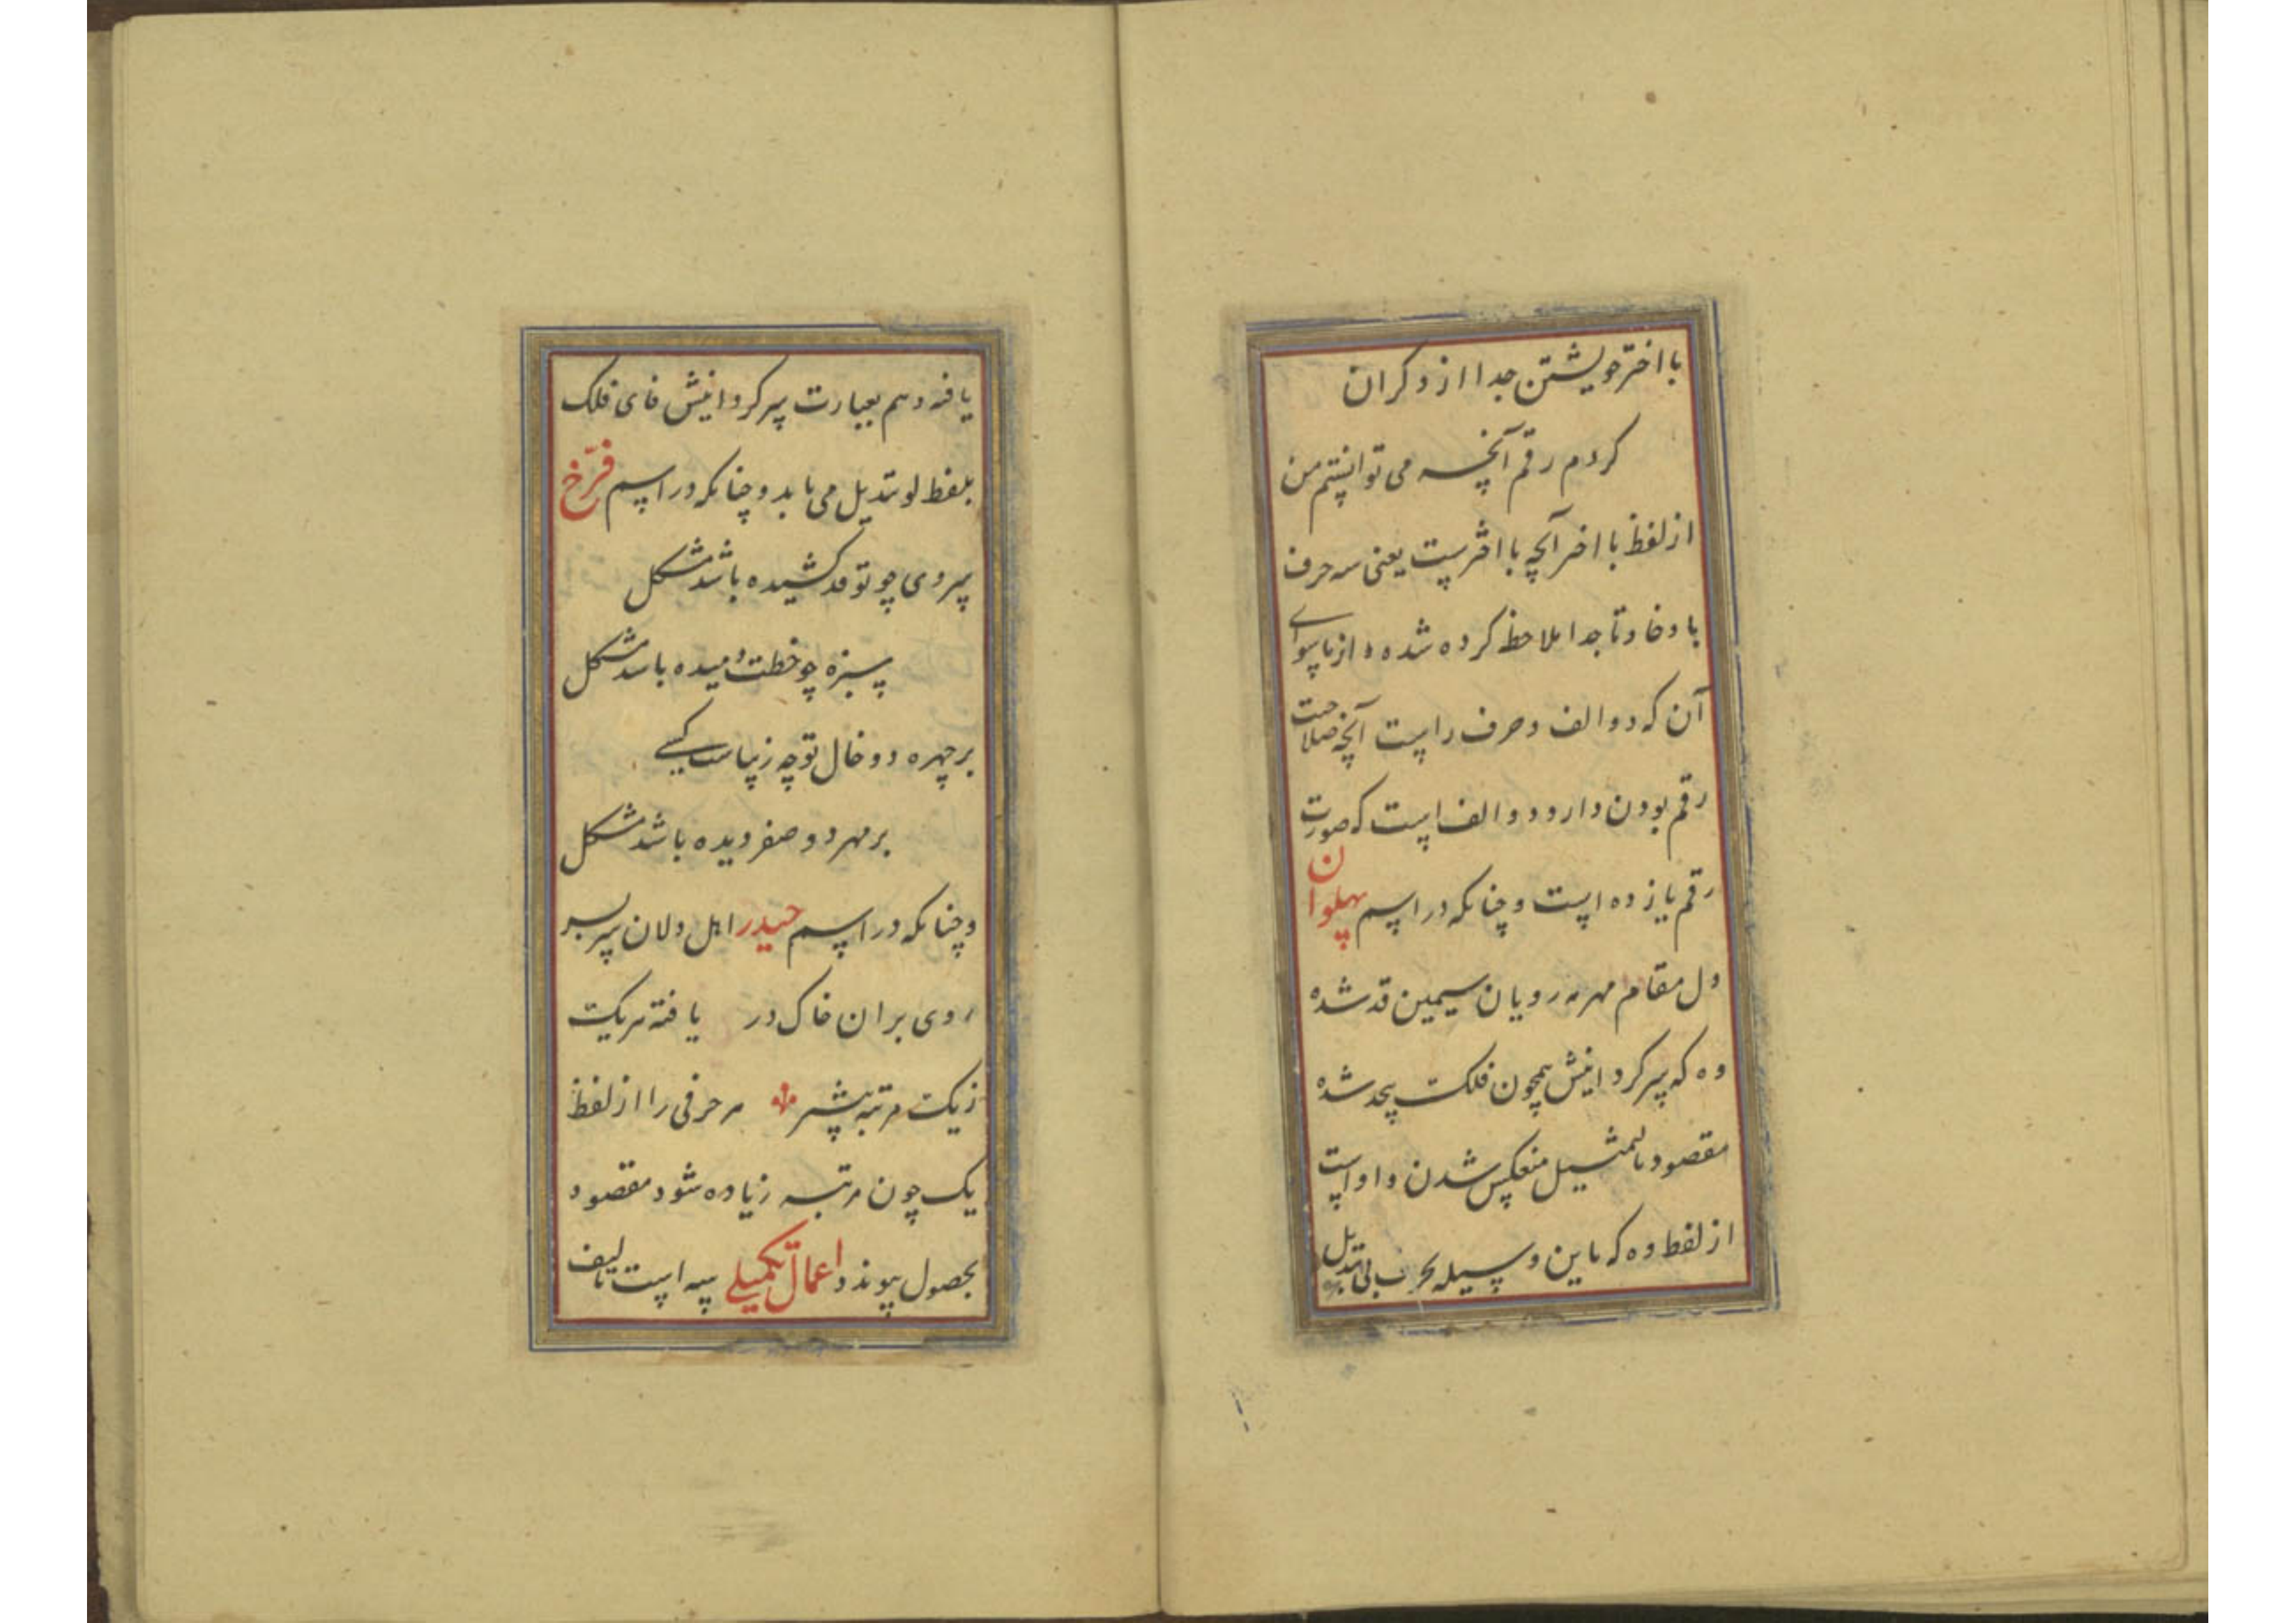 با اختر خویشتن جدا از دگران
کردم رقم آنچه می توانستم من
از لفظ با اختر آنچه با اخترست یعنی سه حرف
با و خا و تا جدا ملاحظه کرده شده و از ماسوای
آن که دو الف و حرف راست آنچه صلاحیت
رقم بودن دارد دو الف است که صورت
رقم یازده است و چنانکه در اسم پهلوان
دل مقام مهر مه رویان سیمین قد شده
وه که سرکردانیش همچون فلک بیحد شده
مقصود بالتمثیل منعکس شدن واو است
از لفظ وه که باین وسیله بحرف با تبدیل
یافته و هم بعبارت سرکردانیش فای فلک
بلفظ لو تبدیل می یابد و چنانکه در اسم فرّخ
سروی چو تو قد کشیده باشد مشکل
سبزه چو خطت دمیده باشد مشکل
بر چهره دو خال تو چه زیباست کسی
بر مهر دو صفر دیده باشد مشکل
و چنانکه در اسم حیدر اهل دلان سربسر
روی بران خاک در یافته هر یک
ز یک مرتبه بیشتر هر حرفی را از لفظ
یک چون مرتبه زیاده شود مقصود
بحصول پیوندد و اعمال تکمیلی سه است تالیف